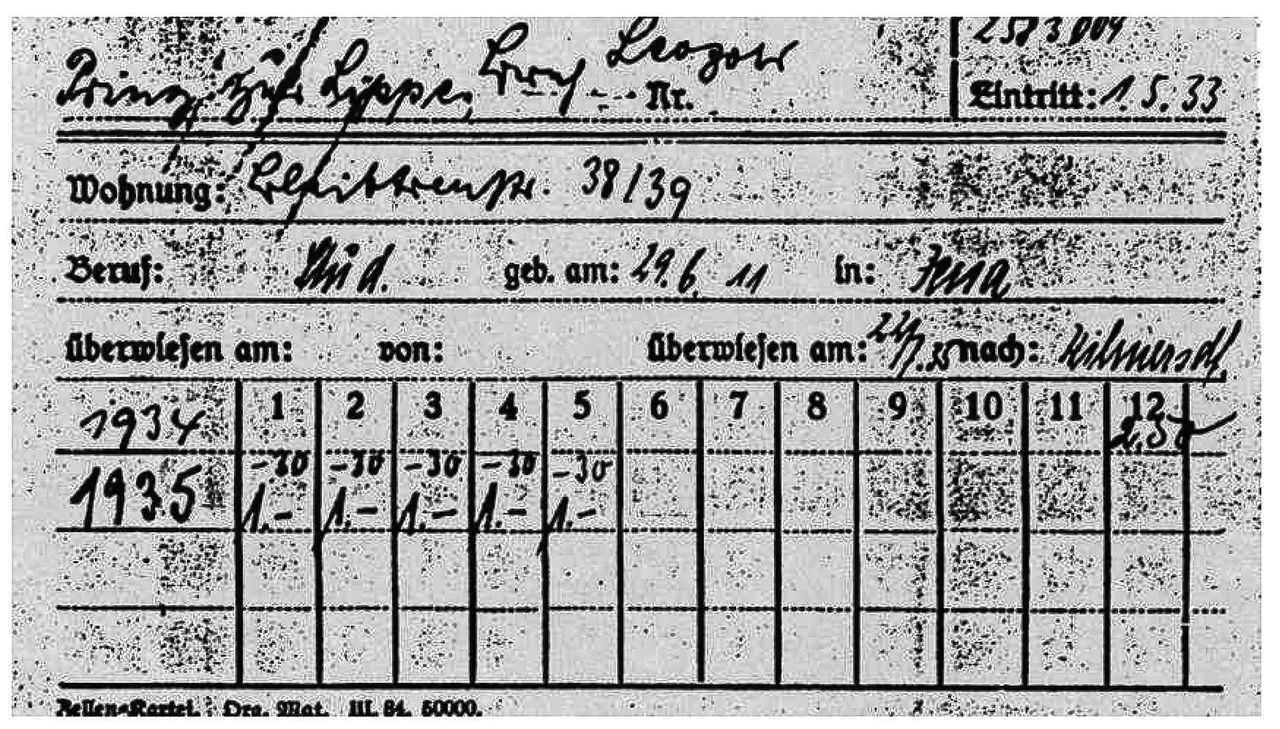 2583009
Prinz zur Lippe, Ernst Leopold Nr. Eintritt: 1.5.33
Wohnung: Kleiststr. 38/39
Beruf: Stud. geb. am: 29.6.11 in: Jena
überwiesen am: von: überwiesen am: nach:
1 2 3 4 5 6 7 8 9 10 11 12
1934 2.50
-30 -30 -30 -30 -30
1935 1.- 1.- 1.- 1.- 1.-
Zellen-Kartei. Org. Mat. III. 84. 50000.